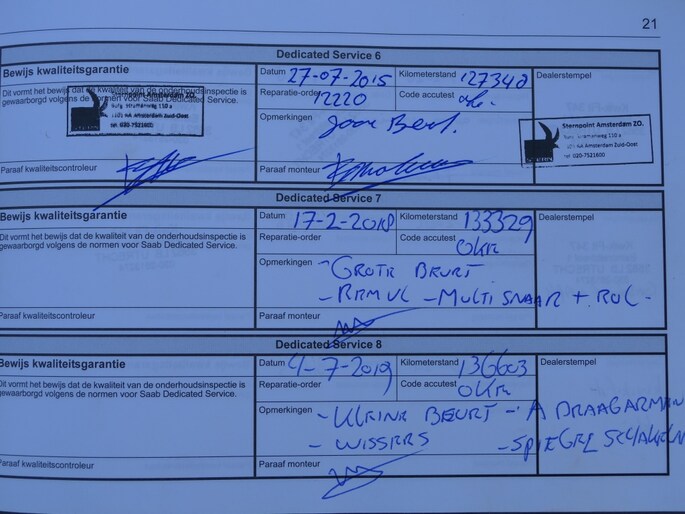 21
Dedicated Service 6
Bewijs kwaliteitsgarantie
Datum 27-07-2015 Kilometerstand 127348 Dealerstempel
Dit vormt het bewijs dat de kwaliteit van de onderhoudsinspectie is
gewaarborgd volgens de normen voor Saab Dedicated Service.
Reparatie-order 12220 Code accutest
Opmerkingen
Sternpoint Amsterdam ZO.
AA Amsterdam Zuid-Oost
tel 020-7521600
Sternpoint Amsterdam ZO.
AA Amsterdam Zuid-Oost
tel 020-7521600
Paraaf kwaliteitscontroleur Paraaf monteur
Dedicated Service 7
Bewijs kwaliteitsgarantie
Datum 17-2-2018 Kilometerstand 133329 Dealerstempel
Dit vormt het bewijs dat de kwaliteit van de onderhoudsinspectie is
gewaarborgd volgens de normen voor Saab Dedicated Service.
Reparatie-order Code accutest OKE
Opmerkingen - GROTE BEURT
- REMVL - MULTISNAAR + ROL -
Paraaf kwaliteitscontroleur Paraaf monteur
Dedicated Service 8
Bewijs kwaliteitsgarantie
Datum 4-7-2019 Kilometerstand 136603 Dealerstempel
Dit vormt het bewijs dat de kwaliteit van de onderhoudsinspectie is
gewaarborgd volgens de normen voor Saab Dedicated Service.
Reparatie-order Code accutest OKE
Opmerkingen - KLEINE BEURT - A DRAAGARMEN
- WISSERS - SPIEGEL
Paraaf kwaliteitscontroleur Paraaf monteur